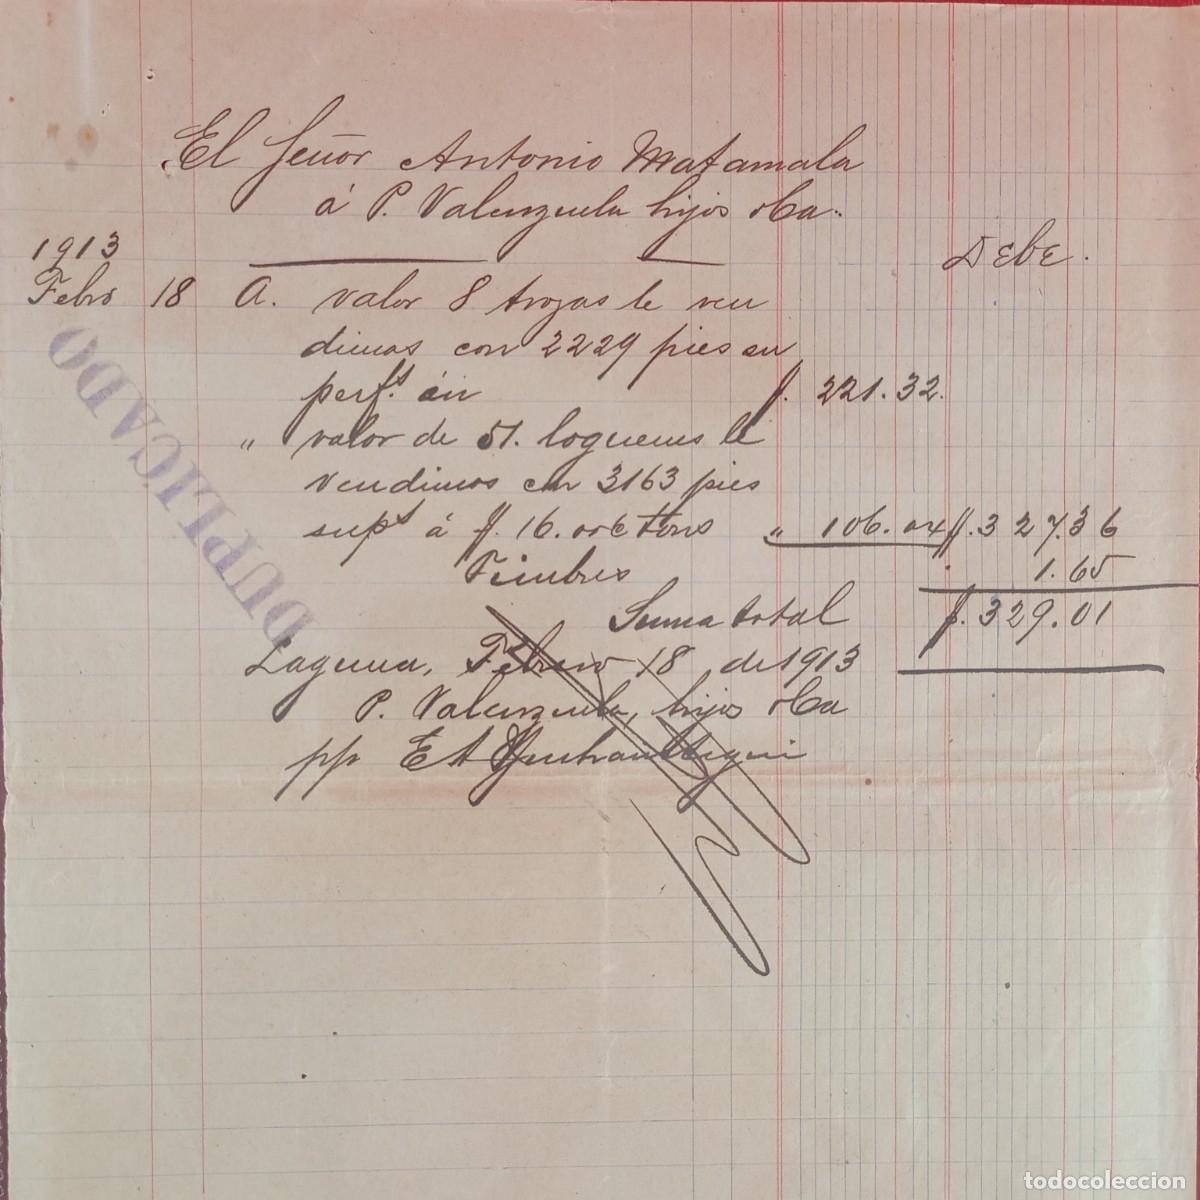 El Señor Antonio Matamala
á P. Valenzuela hijos y Ca.
1913 Debe.
Febro 18 A. valor 8 trozas le ven
dimos con 2229 pies en
perfs. $. 221.32.
" valor de 51. le
vendimos con 3163 pies
supl á $. 16. " 106.04 $. 327.36
Timbres 1.65
Suma total $. 329.01
Laguna, Febrero 18 de 1913
P. Valenzuela, hijos y Ca
pp.
DUPLICADO
todocoleccion